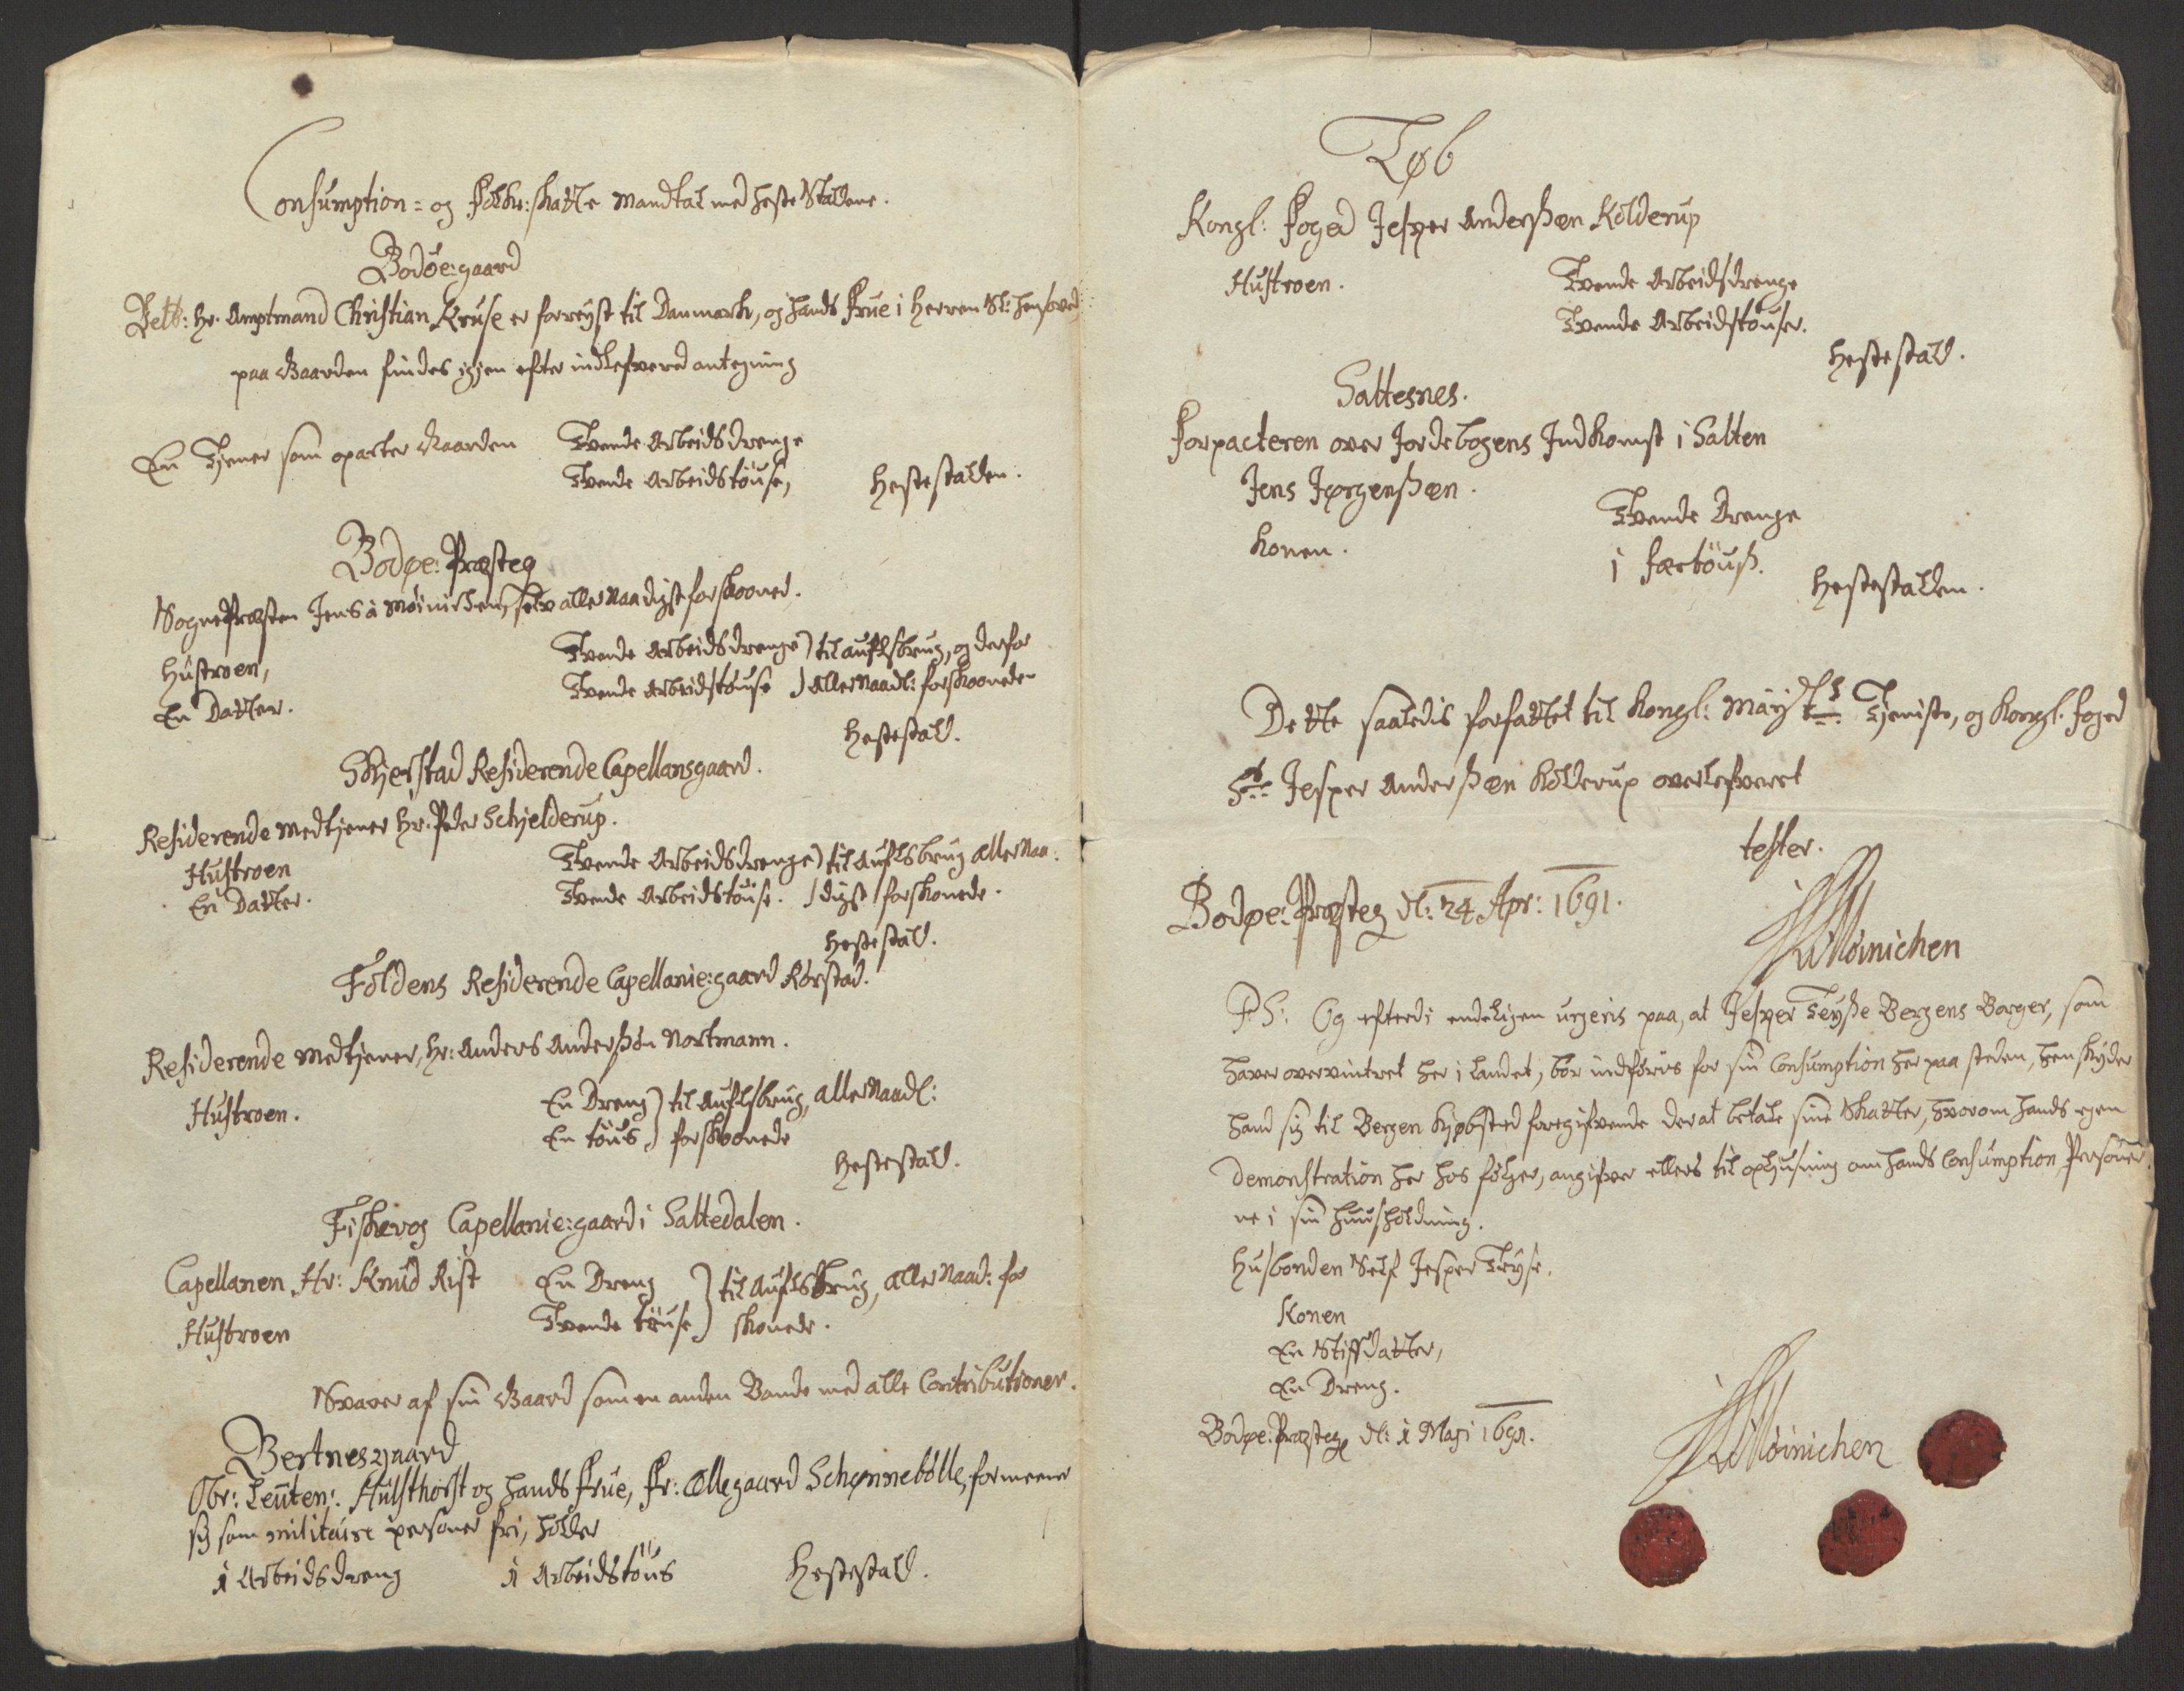 Consumption= og Folke: skatte Mandtal med Heste Staldene.
Bodøe:gaard
Velb: Hr. Amptmand Christian Kruse er forreyst til Danmark, og hands Frue i Herren Sl: hensoved
paa Gaarden findes igjen efter indlefwered antegning
En Tjener som opacter Gaarden
Tvende Arbeidsdrenge
Tvende Arbeidstøuse,
Hestestalden.
Bodøe: Præsteg
SognePræsten Jens à Möinichen, selv allerNaadigst forskoonet.
Hustroen,
En Datter.
Tvende Arbeidsdrenge) til auflsbrug, og derfor
Tvende Arbeidstøuse ) AllerNaadl: forskoonede
Hestestald.
Skjerstad Residerende Capellansgaard.
Residerende Medtjener Hr. Peder Schjelderup.
Hustroen
En Datter.
Tvende Arbeidsdrenge) til Auflsbrug allerNaa:
Tvende Arbeidstøuse. ) digst forskonede.
Hestestald.
Foldens Residerende Capellanie:gaard Rørstad.
Residerende Medtjener, Hr: Anders Anderßøn Nortmann.
Hustroen.
En Dreng) til Auflsbrug, allerNaadl:
En tøus ) forskoonede
Hestestald.
Fiskevog Capellanie:gaard i Saltedalen.
Capellanen Hr: Knud Rist
Hustroen
En Dreng ) til Auflsbrug, allerNaad: for
Tvende tøuse ) skonede.
Svarer af sin Gaard som en anden Bonde med alle Contributioner.
Bertnesgaard
Obr: Leuten: Hülsthorst og hands Frue, Fr: Ællegaard Schønnebølle, formeener
sig som militaire personer fri, holder
1 Arbeidsdreng
1 Arbeidstøus
Hestestald.
Løb
Kongl: Foged Jesper Anderßen Kolderup
Hustroen.
Tvende Arbeidsdrenge
Tvende Arbeidstøuser.
Hestestald.
Saltesnes.
Forpacteren over Jordebogens Indkomst i Salten
Jens Jørgenßen.
Konen.
Tvende Drenge
1 Fæetøuß.
Hestestalden.
Dette saaledis forfattet til Kongl: Mäyts: Tjeniste, og Kongl. Foged
Sr: Jesper Anderßen Kolderup overlefweret
tester.
Bodøe: Præsteg dl: 24 Apr: 1691.
Möinichen
P.S: Og efterdi endeligen urgeris paa, at Jesper Teyße Bergens Borger, som
haver overvintret her i Landet, bør indføris for sin Consumption her paa steden, henskyder
hand sig til Bergen Kjøbsted foregifvende der at betale sine Skatter, hvorom hands egen
demonstration her hos følger, angifver ellers til oplysning om hands Consumption Personer
ne i sin Huusholdning.
Husbonden Self Jesper Teyse.
Konen
En Stifdatter,
En Dreng.
Bodøe: Præsteg dl: 1 Maji 1691.
Möinichen